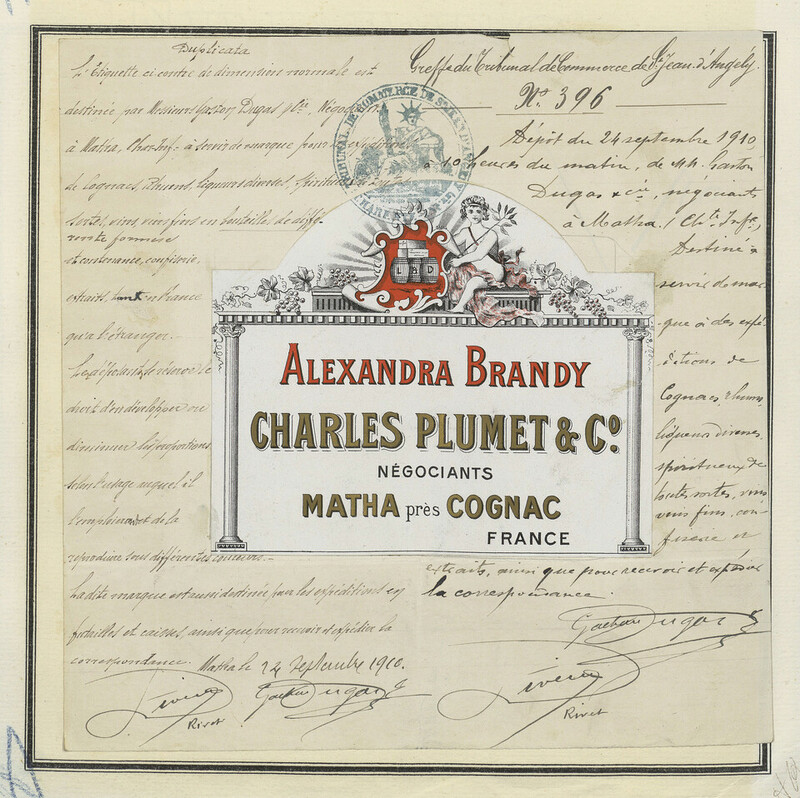 Duplicata
L'Etiquette ci contre de dimension normale est
destinée par Messieurs Gaston Dugas & Cie, Négociants
à Matha, Char. Infre à servir de marque pour les expéditions
de Cognacs, rhums, liqueurs diverses, spiritueux de toutes
sortes, vins, vins fins en bouteilles de diffé-
rente formes
et contenance, confiserie,
extraits, tant en France
qu'a l'étranger.-
Le déposant se réserve le
droit d'en développer ou
diminuer les proportions
selon l'usage auquel il
l'emploiera et de la
reproduire sous différentes couleurs.-
La dite marque est aussi destinée pour les expéditions en
futailles et caisses, ainsi que pour recevoir et expédier la
correspondance. Matha le 24 Septembre 1910.
Rivet
Greffe du Tribunal de Commerce de St Jean d'Angély.
No. 396
Dépôt du 24 septembre 1910,
à 10 heures du matin, de MM. Gaston
Dugas & cie, négociants
à Matha, (Chte Infre)
Destiné à
servir de mar
que à des expé
ditions de
Cognacs, rhums,
liqueurs diverses,
spiritueux de
toutes sortes, vins
vins fins, con-
fiserie et
extraits, ainsi que pour recevoir et expédier
la correspondance.
Rivet
TRIBUNAL DE COMMERCE DE ST JEAN D'ANGELY
L & D
ALEXANDRA BRANDY
CHARLES PLUMET & Co.
NÉGOCIANTS
MATHA près COGNAC
FRANCE